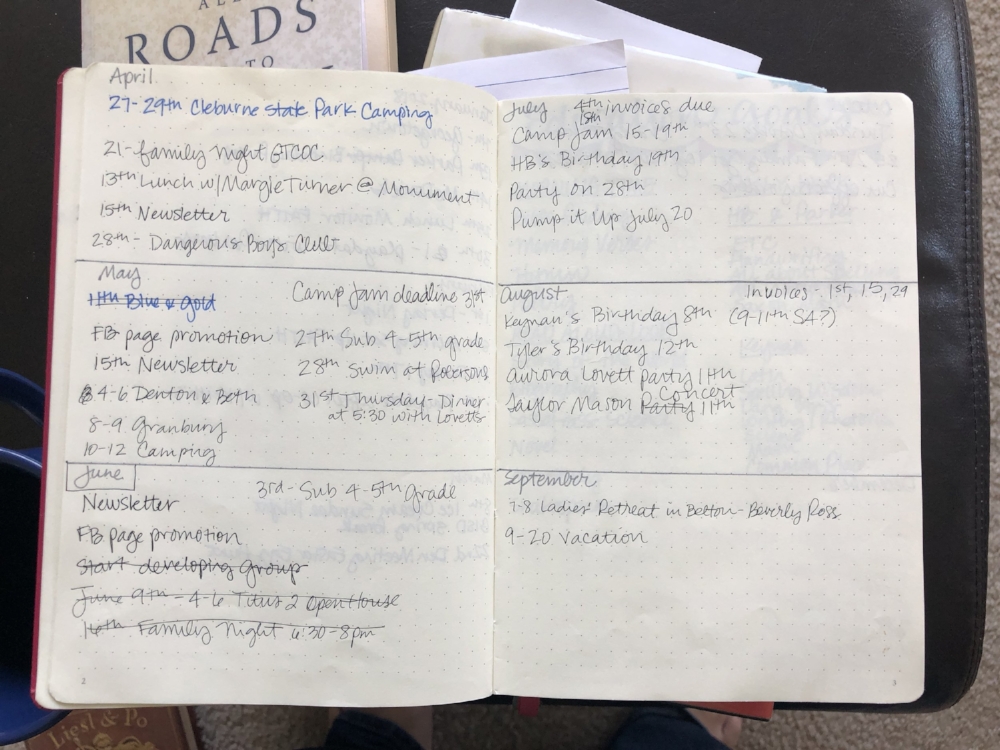 ROADS
TO
April
27-29th Cleburne State Park Camping
21-family night GTCOC
13th Lunch w/Margie Turner @ Monument
15th Newsletter
28th - Dangerous Boys Club
May
11th Blue & Gold
Camp Jam deadline 31st
FB page promotion
27th Sub 4-5th grade
15th Newsletter
28th Swim at Robersons
4-6 Denton & Beth
31st Thursday - Dinner
at 5:30 with Lovetts
8-9 Granbury
10-12 Camping
June
3rd - Sub 4-5th grade
Newsletter
FB page promotion
Start developing Group
June 9th - 4-6 Titus 2 Open House
16th Family Night 6:30-8pm
2
July 4th invoices due
15th
Camp Jam 15-19th
HB's Birthday 19th
Party on 28th
Pump it Up July 20
August
Invoices - 1st, 15, 29
Keynan's Birthday 8th (9-11th SA?)
Tyler's Birthday 12th
Aurora Lovett party 11th
Concert
Taylor Mason Party 11th
September
7-8 Ladies' Retreat in Belton - Beverly Ross
9-20 Vacation
3
Liesl & Po